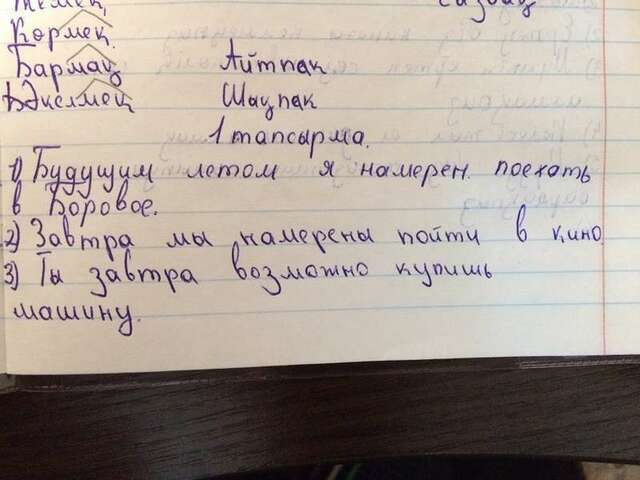 Көрмек.
Бармақ Айтпақ
Әкелмек Шықпақ
1 тапсырма.
1) Будущим летом я намерен поехать
в Боровое.
2) Завтра мы намерены пойти в кино
3) Ты завтра возможно купишь
машину.